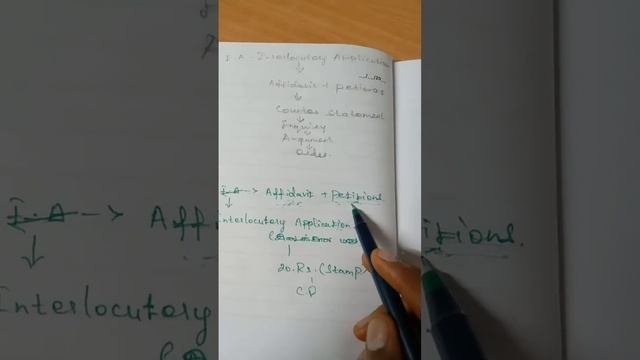 I.A - Interlocutory Application
Affidavit + petitions
Counter Statement
Inquiry
Argument
Order.
I.A -> Affidavit + petitions
Interlocutory Application
20. Rs. (Stamp